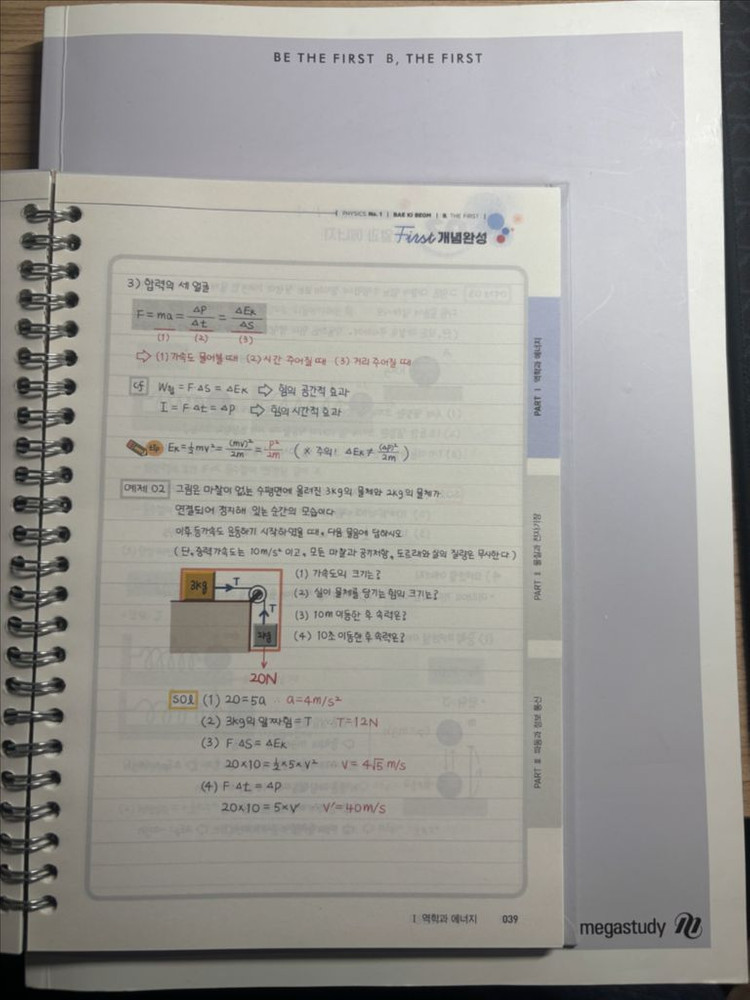 BE THE FIRST B, THE FIRST
PHYSICS No.1 | BAE KI BEOM | B, THE FIRST
First 개념완성
3) 알짜력의 세 얼굴
F = ma = ΔP/Δt = ΔEk/ΔS
(1) (2) (3)
⇨ (1) 가속도 물어볼 때 (2) 시간 주어질 때 (3) 거리 주어질 때
cf W알 = F ΔS = ΔEk ⇨ 힘의 공간적 효과
I = F Δt = Δp ⇨ 힘의 시간적 효과
tip Ek = ½mv² = (mv)²/2m = P²/2m (※ 주의! ΔEk ≠ (ΔP)²/2m)
예제 02 그림은 마찰이 없는 수평면에 올려진 3kg의 물체와 2kg의 물체가
연결되어 정지해 있는 순간의 모습이다
이후 등가속도 운동하기 시작하였을 때, 다음 물음에 답하시오
(단, 중력가속도는 10m/s² 이고, 모든 마찰과 공기저항, 도르래와 실의 질량은 무시한다)
3kg T
T
2kg
20N
(1) 가속도의 크기는?
(2) 실이 물체를 당기는 힘의 크기는?
(3) 10m 이동한 후 속력은?
(4) 10초 이동한 후 속력은?
sol (1) 20=5a a=4m/s²
(2) 3kg의 알짜힘 = T T=12N
(3) F ΔS = ΔEk
20×10 = ½×5×V² V = 4√5 m/s
(4) F Δt = Δp
20×10 = 5×V' V'=40m/s
PART I 역학과 에너지
PART II 물질과 전자기장
PART III 파동과 정보 통신
I 역학과 에너지 039
megastudy